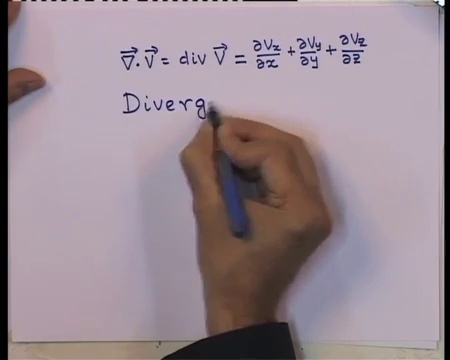 ∇⃗.V⃗ = div V⃗ = ∂Vx/∂x + ∂Vy/∂y + ∂Vz/∂z
Diverg